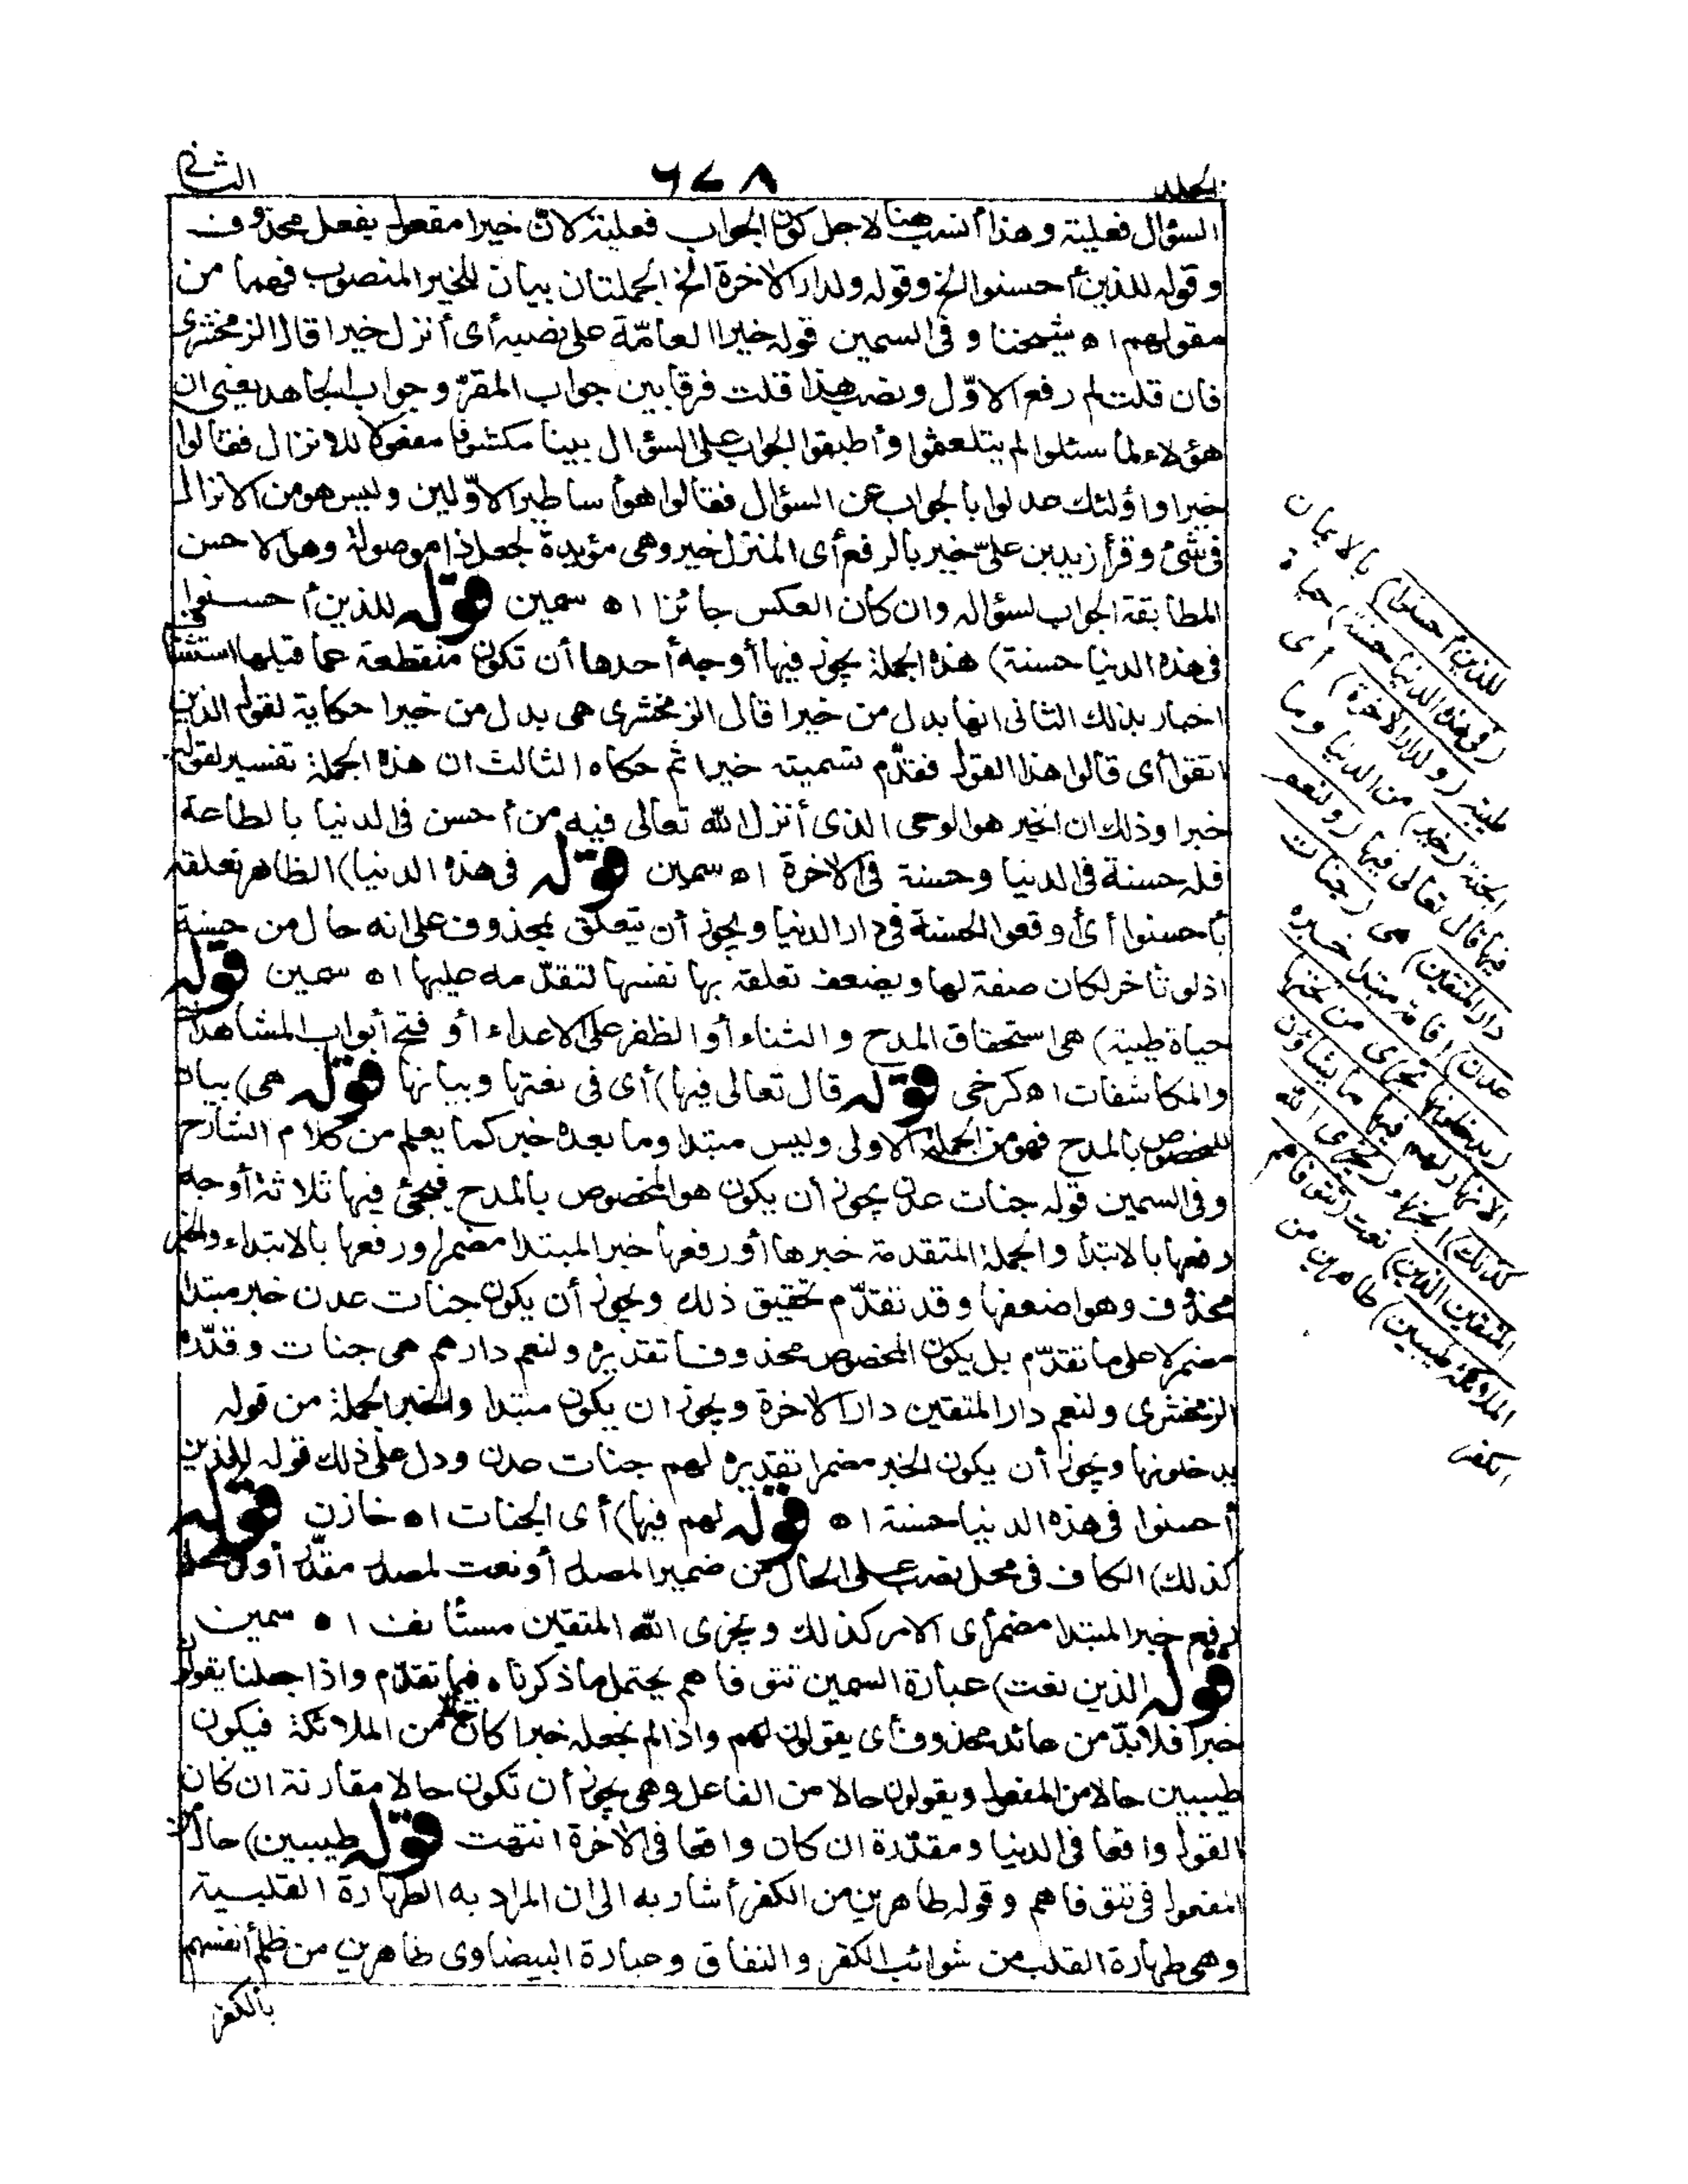 المجلد ٦٧٨ الثاني
السؤال فعلية وهذا أنسب هنا لاجل كون الجواب فعلية لانّ خيرا مفعول بفعل محذوف
وقوله للذين أحسنوا الخ وقوله ولدار الاخرة الخ الجملتان بيان للخير المنصوب فهما من
مقولهم اه شيخنا وفى السمين قوله خيرا العامّة على نصبه أى أنزل خيرا قال الزمخشرى
فان قلت لم رفع الاوّل ونصب هذا قلت فرقا بين جواب المقرّ وجواب الجاحد يعنى ان
هؤلاء لما سئلوا لم يتلعثموا وأطبقوا الجواب على السؤال بينا مكشوفا مفعولا للانزال فقالوا
خيرا وأولئك عدلوا بالجواب عن السؤال فقالوا هو أساطير الاوّلين وليس هو من الانزال
فى شئ وقرأ زيد بن علىّ خير بالرفع أى المنزل خير وهى مؤيدة لجعل ذا موصولة وهو الاحسن
المطابقة الجواب لسؤاله وان كان العكس جائزا اه سمين قوله للذين أحسنوا
فى هذه الدنيا حسنة) هذه الجملة يجوز فيها أوجه أحدها أن تكون منقطعة عما قبلها استئنا فى
اخبار بذلك الثانى انها بدل من خيرا قال الزمخشرى هى بدل من خيرا حكاية لقول الذين
اتقوا أى قالوا هذا القول فقدّم تسميته خيرا ثم حكاه الثالث ان هذه الجملة تفسير لقوله
خيرا وذلك ان الخير هو الوحى الذى أنزل الله تعالى فيه من أحسن فى الدنيا بالطاعة
فله حسنة فى الدنيا وحسنة فى الاخرة اه سمين قوله فى هذه الدنيا) الظاهر تعلقه
بأحسنوا أى أوقعوا الحسنة فى دار الدنيا ويجوز أن يتعلق بمحذوف على انه حال من حسنة
اذ لو تأخر لكان صفة لها ويضعف تعلقه بها نفسها لتقدّمه عليها اه سمين قوله
حياة طيبة) هى استحقاق المدح والثناء أو الظفر على الاعداء أو فتح أبواب المشاهدات
والمكاشفات اه كرخى قوله قال تعالى فيها) أى فى نعتها وبيانها قوله هى) بيان
للمخصوص بالمدح فهو من الجملة الاولى وليس مبتدا وما بعده خبر كما يعلم من كلام الشارح
وفى السمين قوله جنات عدن يجوز أن يكون هو المخصوص بالمدح فيجئ فيها ثلاثة أوجه
رفعها بالابتدأ والجملة المتقدمة خبرها أو رفعها خبر المبتدا مضمر أو رفعها بالابتداء والخبر
محذوف وهو اضعفها وقد تقدّم تحقيق ذلك ويجوز أن يكون جنات عدن خبر مبتدا
مضمر لا على ما تقدّم بل يكون المخصوص محذوفا تقديره ولنعم دارهم هى جنات وقدّره
الزمخشرى ولنعم دار المتقين دار الاخرة ويجوز ان يكون مبتدا والخبر الجملة من قوله
يدخلونها ويجوز أن يكون الخبر مضمرا تقديره لهم جنات عدن ودل على ذلك قوله للذين
أحسنوا فى هذه الدنيا حسنة اه قوله لهم فيها) أى الجنات اه خازن قوله
كذلك) الكاف فى محل نصب على الحال من ضمير المصدر أو نعت لمصدر مقدّر أو فى محل
رفع خبر المبتدا مضمر أى الامر كذلك ويجزى الله المتقين مستأنف اه سمين
قوله الذين نعت) عبارة السمين تتوفاهم يحتمل ما ذكرناه فيما تقدّم واذا جعلنا يقولون
خبرا فلابدّ من عائد محذوف أى يقولون لهم واذا لم نجعله خبرا كان حالا من الملائكة فيكون
طيبين حالا من المفعول ويقولون حالا من الفاعل وهى يجوز أن تكون حالا مقارنة ان كان
القول واقعا فى الدنيا ومقدّرة ان كان واقعا فى الاخرة انتهت قوله طيبين) حال من
المفعول فى تتوفاهم وقوله طاهرين من الكفر أشار به الى ان المراد به الطهارة القلبية
وهى طهارة القلب من شوائب الكفر والنفاق وعبارة البيضاوى طاهرين من ظلم أنفسهم
بالكفر
للذين أحسنوا) بالايمان
(فى هذه الدنيا حسنة) حياة
طيبة (ولدار الاخرة) أى
الجنة (خير) من الدنيا وما
فيها قال تعالى فيها (ولنعم
دار المتقين) هى (جنات
عدن) اقامة مبتدا خبره
(يدخلونها تجرى من تحتها
الانهار لهم فيها ما يشاؤن
كذلك) الجزاء (يجزى الله
المتقين الذين) نعت (تتوفاهم
الملائكة طيبين) طاهرين من
الكفر